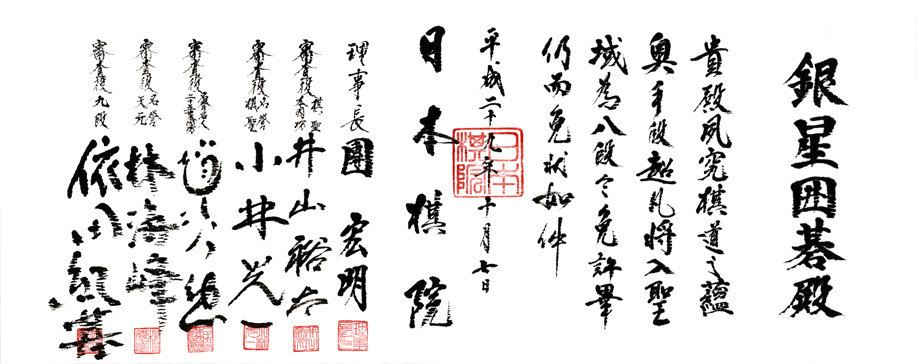 銀星囲碁殿
貴殿夙究棋道之蘊
奥手段超凡将入聖
域為八段令免許畢
仍而免状如件
平成二十九年十月七日
日本棋院
日本棋院
理事長 團宏明
審査役 棋聖 本因坊 井山裕太
審査役 名誉棋聖 小林光一
審査役 趙治勲
審査役 名誉天元 林海峰
審査役 九段 依田紀基